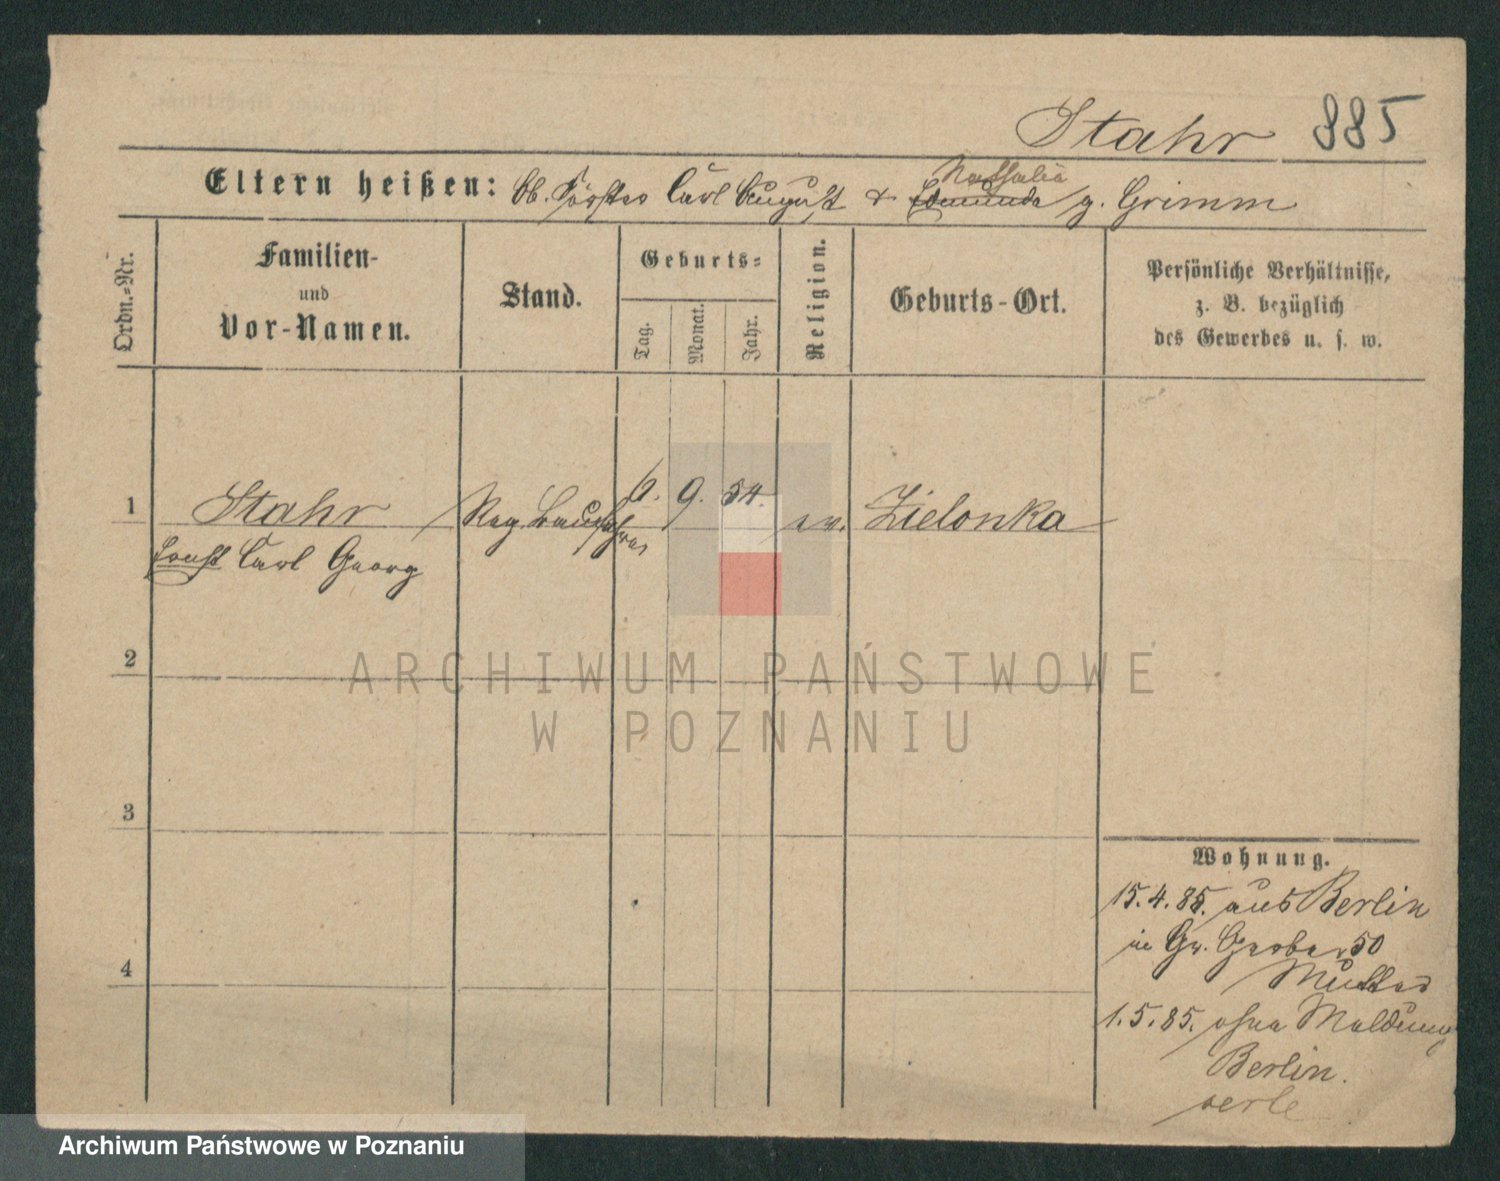 Stahr 885
Eltern heißen: Ob. Förster Carl August & Edmunda Nathalia g. Grimm
Ordn.=Nr.
Familien-
und
Vor-Namen.
Stand.
Geburts=
Tag.
Monat.
Jahr.
Religion.
Geburts-Ort.
Persönliche Verhältnisse,
z. B. bezüglich
des Gewerbes u. s. w.
1 Stahr Reg. Bauführer 6. 9. 54. ev. Zielonka
Ernst Carl Georg
2
3
4
Wohnung.
15.4.85. aus Berlin
in Gr. Gerber 50
Mutter
1.5.85. ohne Meldung
Berlin.
ARCHIWUM PAŃSTWOWE
W POZNANIU
Archiwum Państwowe w Poznaniu